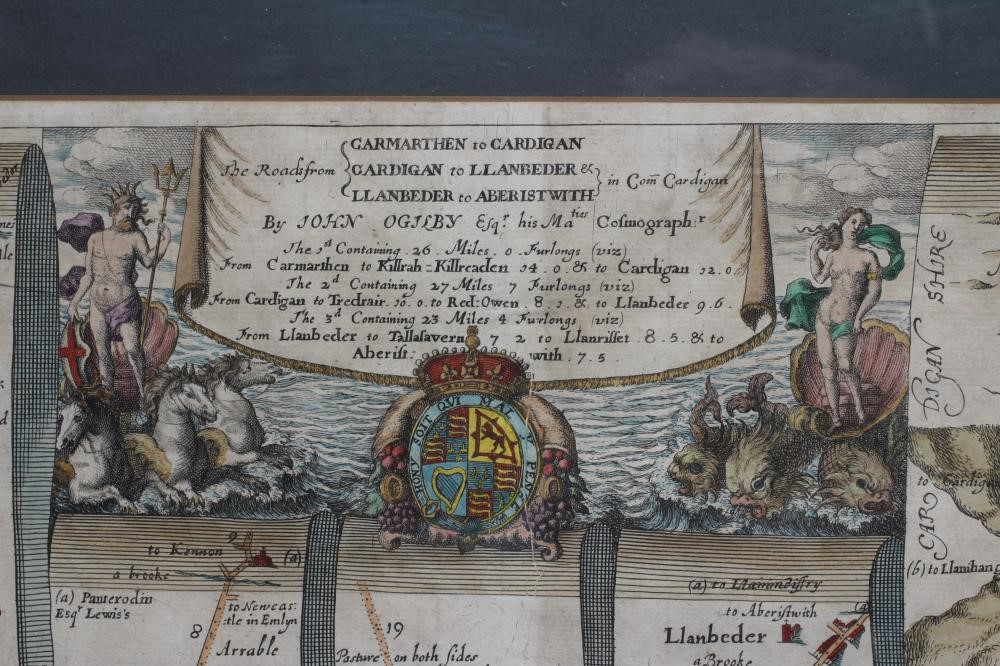 The Roads from
CARMARTHEN to CARDIGAN
CARDIGAN to LLANBEDER &
LLANBEDER to ABERISTWITH
in Com Cardigan
By IOHN OGILBY Esqr. his Maties Cosmographr
The 1st Containing 26. Miles. 0. Furlongs (viz)
From Carmarthen to Killrah=Killreaden 14. 0. & to Cardigan 12. 0
The 2d Containing 27 Miles 7 Furlongs (viz)
From Cardigan to Tredrair. 10. 0. to Red-Owen. 8. 1. & to Llanbeder 9. 6.
The 3d Containing 23 Miles 4 Furlongs (viz)
From Llanbeder to Tallasavern 7 2 to Llanrisset. 8. 5. & to
Aberist: with. 7. 5.
HONY SOIT QUI MAL Y PENSE
CAR DIGAN SHIRE
to Cardigan
(b) to Llanihang
to Kennon
9
(a)
a brooke
(a) Panterodin
Esqr Lewis's
to Newcas:
tle in Emlyn
8
Arrable
19
Pasture on both sides
(a) to Llanimdiffry
to Aberistwith
(a)
Llanbeder
a Brooke